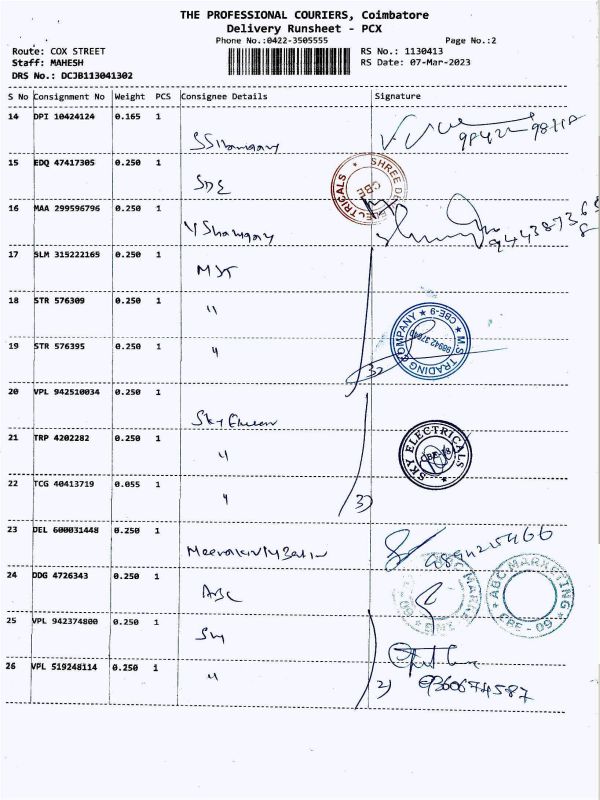 THE PROFESSIONAL COURIERS, Coimbatore
Delivery Runsheet - PCX
Phone No.:0422-3505555 Page No.:2
Route: COX STREET RS No.: 1130413
Staff: MAHESH RS Date: 07-Mar-2023
DRS No.: DCJB113041302
S No Consignment No Weight PCS Consignee Details Signature
14 DPI 10424124 0.165 1
15 EDQ 47417305 0.250 1
SDE
SHREE ELECTRICALS CBE
16 MAA 299596796 0.250 1
17 SLM 315222165 0.250 1
MST
18 STR 576309 0.250 1
"
M.S TRADING COMPANY CBE-9
19 STR 576395 0.250 1
"
3)
20 VPL 942510034 0.250 1
Sky
21 TRP 4202282 0.250 1
"
SKY ELECTRICALS
22 TCG 40413719 0.055 1
"
3)
23 DEL 600031448 0.250 1
24 DDG 4726343 0.250 1
ABC
ABC MARKETING CBE - 09
ABC MARKETING CBE - 09
25 VPL 942374800 0.250 1
26 VPL 519248114 0.250 1
"
2)